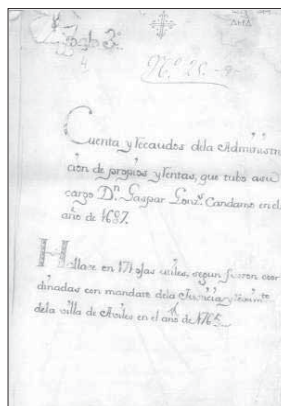 Nº 25.
Cuenta y Recaudos dela Administra
cion de propios y Rentas, que tubo asu
cargo Dn. Gaspar Gonz. Candamo en el
año de 1687.
Hallase en 171 ojas utiles, segun fueron coor
dinadas con mandato dela Justicia y
dela villa de Aviles en el año de 1765